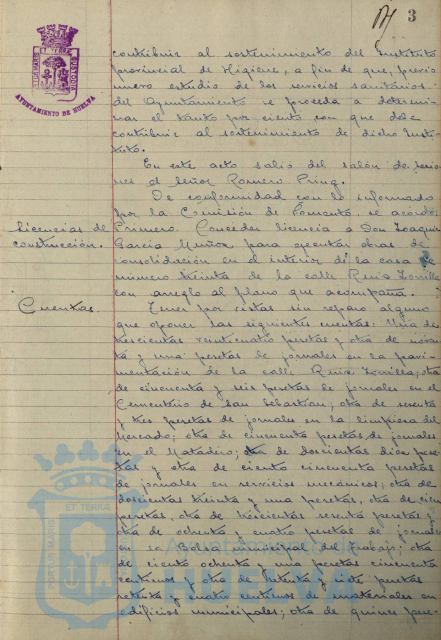 3
contribuir al sostenimiento del Instituto
provincial de Higiene, a fin de que, previo
nuevo estudio de los servicios sanitarios
del Ayuntamiento se proceda a determi-
nar el tanto por ciento con que debe
contribuir al sostenimiento de dicho Insti-
tuto.
En este acto salió del salón de sesio-
nes el Señor Romero Prinz.
De conformidad con lo informado
por la Comisión de Fomento, se acordó:
Licencias de construcción.
Primero. Conceder licencia a Don Joaquin
Garcia Muñoz para ejecutar obras de
consolidación en el interior de la casa
número treinta de la calle Ruiz Zorrilla
con arreglo al plano que acompaña.
Cuentas.
Tener por vistas sin reparo alguno
que oponer las siguientes cuentas: Una de
trescientas veinticuatro pesetas y otra de noven-
ta y una pesetas de jornales en la pavi-
mentación de la calle Ruiz Zorrilla; otra
de cincuenta y seis pesetas de jornales en el
Cementerio de San Sebastian; otra de sesenta
y tres pesetas de jornales en la limpieza del
Mercado; otra de cincuenta pesetas de jornales
en el Matadero; otra de doscientas diez pese-
tas y otra de ciento cincuenta pesetas
de jornales en servicios mecánicos; otra de
doscientas treinta y una pesetas, otra de cien
pesetas, otra de trescientas pesetas y
otra de ochenta y cuatro pesetas de jornales
en la Bolsa municipal del Trabajo; otra
de ciento ochenta y una pesetas cincuenta
centimos y otra de setenta y siete pesetas
setenta y cuatro centimos de materiales en
edificios municipales; otra de quince pese-
AYUNTAMIENTO DE HUELVA
PORTUS MARIS ET TERRAE CUSTODIA